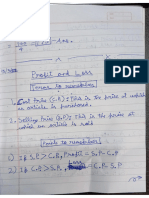 Profit and Loss
Terms to remember
1. Cost Price (C.P): This is the price at which
an article is purchased.
2. Selling Price (S.P): This is the price at
which an article is sold.
Facts to remember
1) If S.P > C.P, Profit = S.P - C.P
2) If S.P < C.P, = C.P - S.P